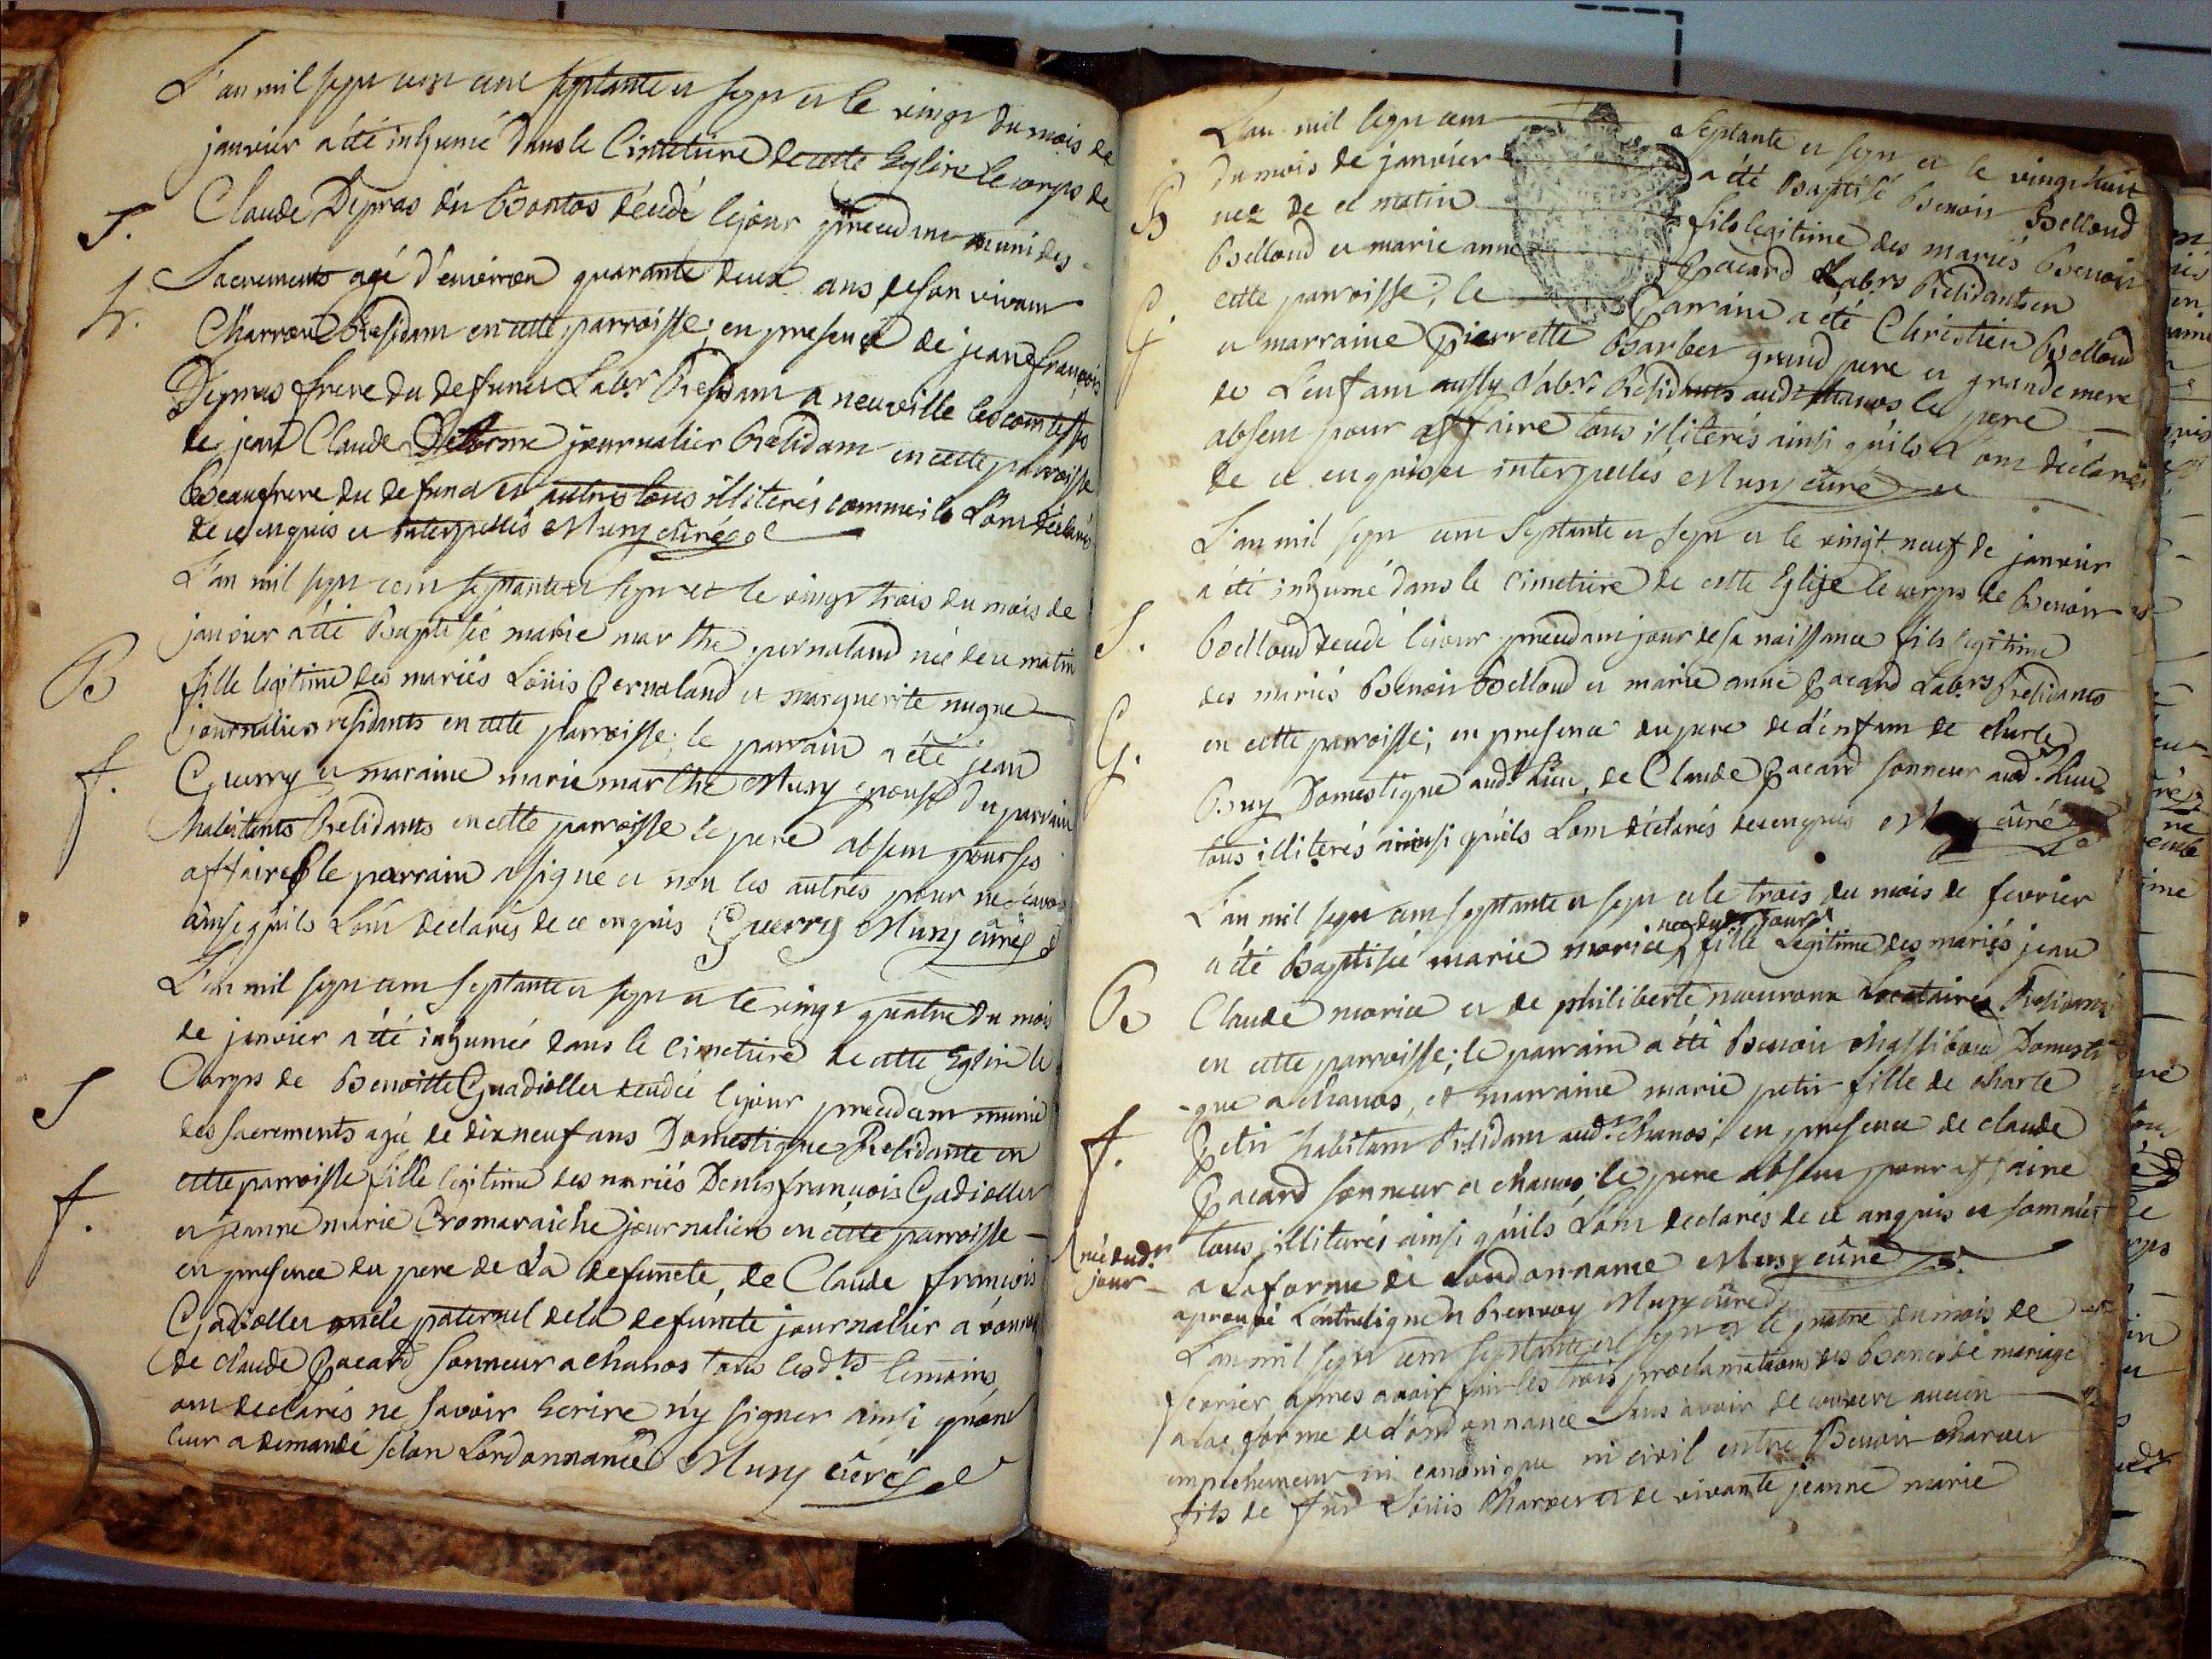 L'an mil sept cent septante et sept et le vingt du mois de
janvier a été inhumé dans le Cimetiere de cette Eglise le corps de
Claude Depras dit décédé le jour precedent muni des
S.
Sacrements agé d'environ quarante deux ans, de son vivant
h.
Charron Residant en cette parroisse; en presence de jean françois
Depras frere du defunct Labr Residant a neuville les comtesse
de jean Claude Delorme journalier Residant en cette parroisse
Beaufrere du defunct et autres tous illiterés comme ils L'ont déclarés
de ce enquis et interpellés Musy curé
L'an mil sept cent septante et sept et le vingt trois du mois de
janvier a été Baptisée marie marthe pernaland née de ce matin
B
fille legitime des mariés Loüis Pernaland et marguerite nugue
journaliers residants en cette parroisse; le parrain a été jean
f.
Guerry et maraine marie marthe Musy epouse du parrain
habitants Residants en cette parroisse le pere absent pour ses
affaires le parrain a signé et non les autres pour ne savoir
ainsi qu'ils L'ont declarés de ce enquis Guerry Musy curé
L'an mil sept cent septante et sept et le vingt quatre du mois
de janvier a été inhumée dans le Cimetiere de cette Eglise le
Corps de Benoitte Guadiollet décédée le jour precedent munie
S
des sacrements agée de dix neuf ans Domestique Residante en
cette parroisse fille legitime des mariés Denis françois Gadiollet
f.
et jeanne marie Cromaraiche journaliers en cette parroisse
en presence du pere de La defuncte, de Claude françois
Gadiollet oncle paternel de la defuncte journalier a
de claude Pacard sonneur a chanos tous lesdts temoins
ont declarés ne savoir Ecrire n'y signer ainsi qu'on
leur a demandé selon Lordonnance Musy curé
L'an mil sept cent septante et sept et le vingt huit
du mois de janvier a été Baptisé Benoit Belloud
B
nez de ce matin fils legitime des mariés Benoit
Belloud et marie anne Pacard Labrs Residants en
cette parroisse; le Parrain a été Christien Belloud
G.
et marraine pierrette Barbet grand pere et grande mere
de L'enfant aussy Labrs Residants audt chanos le pere
absent pour affaire tous illiterés ainsi qu'ils L'ont declarés
de ce enquis et interpellés Musy curé
L'an mil sept cent septante et sept et le vingt neuf de janvier
a été inhumé dans le cimetiere de cette Eglise le corps de Benoit
S.
Belloud décédé le jour precedent jour de sa naissance fils legitime
des mariés Benoit Belloud et marie anne Pacard Labrs Residants
G.
en cette parroisse; en presence du pere de d'enfant de charle
Buy Domestique audt Lieu, de Claude Pacard sonneur audt Lieu
tous illiterés ainsi qu'ils L'ont déclarés de ce enquis curé
L'an mil sept cent septante et sept et le trois du mois de fevrier
née dudt jour
a été Baptisée marie morice fille Legitime des mariés jean
B
Claude morice et de philiberte Locataires Residants
en cette parroisse; le parrain a été Benoit chassiboud Domesti
-que a chanos, et marraine marie petit fille de charle
f.
Petit habitant Residant audt chanos; en presence de claude
Pacard sonneur a chanos le pere absent pour affaire
tous illiterés ainsi qu'ils L'ont declarés de ce anquis et sommés
née dudt
jour
a Laforme de Lordonnance Musy curé
aprouvé L'entreligne et Renvoy Musy curé
L'an mil sept cent septante et sept et le quatre du mois de
fevrier apres avoir fait les trois proclamations des Bancs de mariage
a la forme de L'ordonnance sans avoir decouvert aucun
empechement ni canonique ni civil entre Benoit charvet
fils de fût Loüis Charvet et de vivante jeanne marie